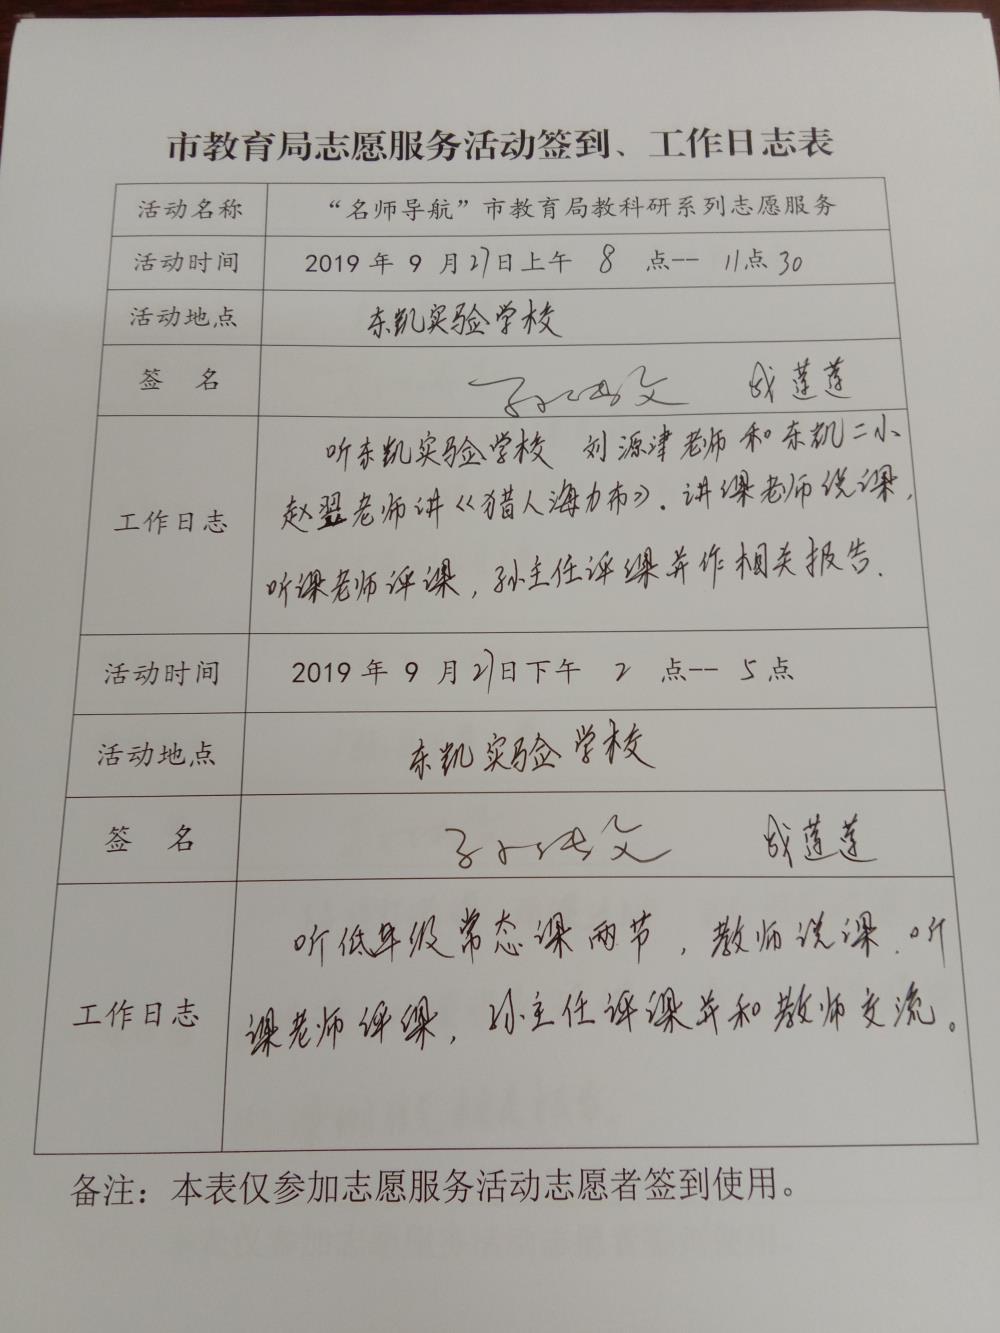 市教育局志愿服务活动签到、工作日志表
活动名称 “名师导航”市教育局教科研系列志愿服务
活动时间 2019 年 9 月27日上午 8 点-- 11点30
活动地点 东凯实验学校
签 名 成莲莲
听东凯实验学校 刘源津老师和东凯二小
工作日志 赵翌老师讲《猎人海力布》.讲课老师说课,
听课老师评课,孙主任评课并作相关报告.
活动时间 2019 年 9 月27日下午 2 点-- 5点
活动地点 东凯实验学校
签 名 成莲莲
听低年级常态课两节,教师说课.听
工作日志 课老师评课,孙主任评课并和教师交流。
备注：本表仅参加志愿服务活动志愿者签到使用。